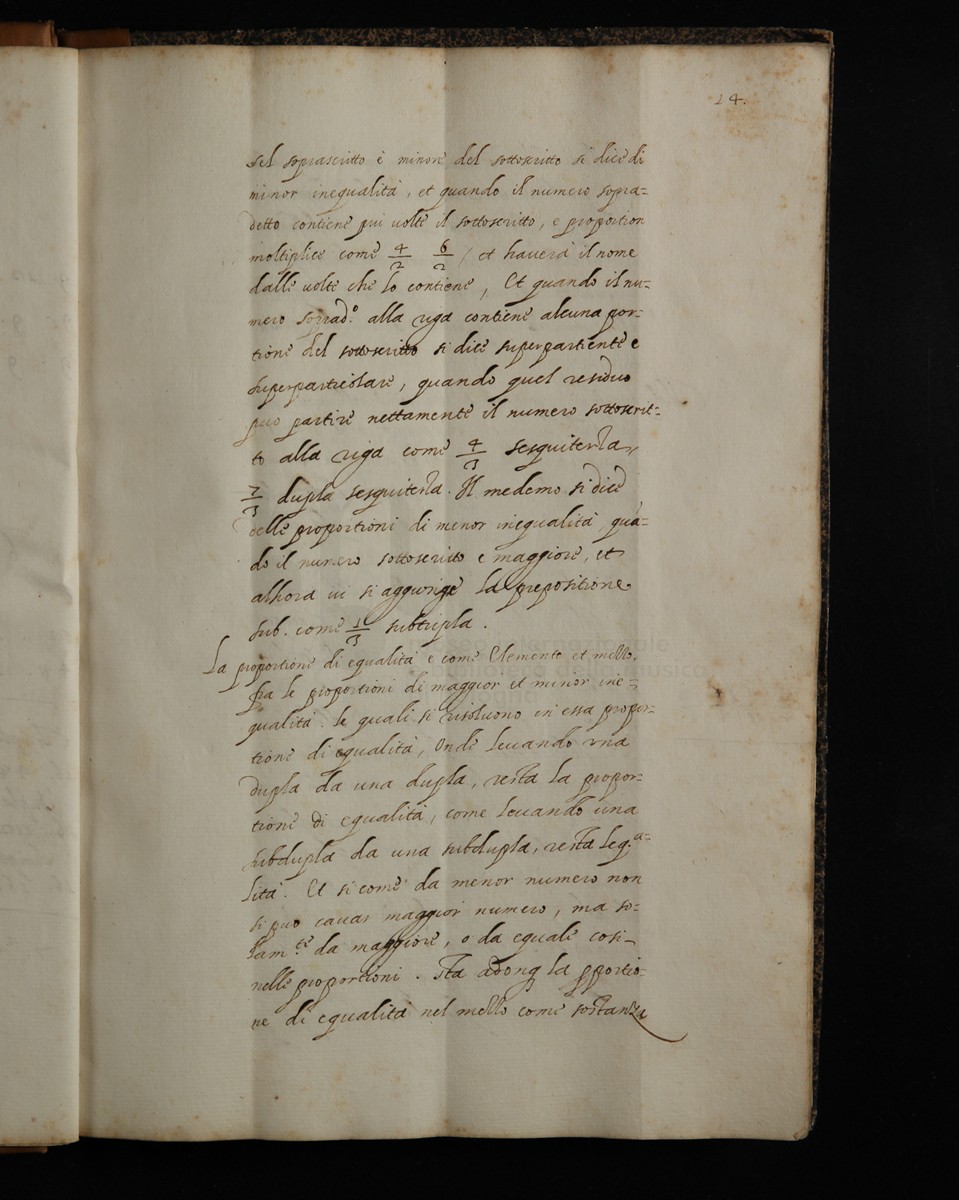 24.
sel soprascritto è minore del sottoscritto si dice di
minor inequalità, et quando il numero sopra=
detto contiene piu volte il sottoscritto, e proportion
moltiplice come 4/2 6/2 / et haverà il nome
dalle volte che lo contiene, Et quando il nu=
mero soprad.º alla riga contiene alcuna por=
tione del sottoscritto si dice superpartiente e
superparticolare, quando quel residuo
puo partire nettamente il numero sottoscrit=
to alla riga come 4/3 sesquiterza,
7/3 dupla sesquiterza. Il medemo si dice
delle proportioni di menor inequalità, quā=
do il numero sottoscritto e maggiore, et
alhora vi si aggiunge la prepositione
sub. come 1/3 subtripla.
La proportione di equalità e come Elemento et mezzo,
fra le proportioni di maggior et minor ine=
qualità. le quali si risoluono in essa propor=
tione di equalità, Onde levando una
dupla da una dupla, resta la propor=
tione di equalità, come levando una
subdupla da una subdupla, resta leq.a=
lità. Et si come da menor numero non
si puo cavar maggior numero, ma so=
lam.te da maggiore, o da equale cosi
nelle proportioni. Sta adonq la pportio=
ne di equalità nel mezzo come sostanza